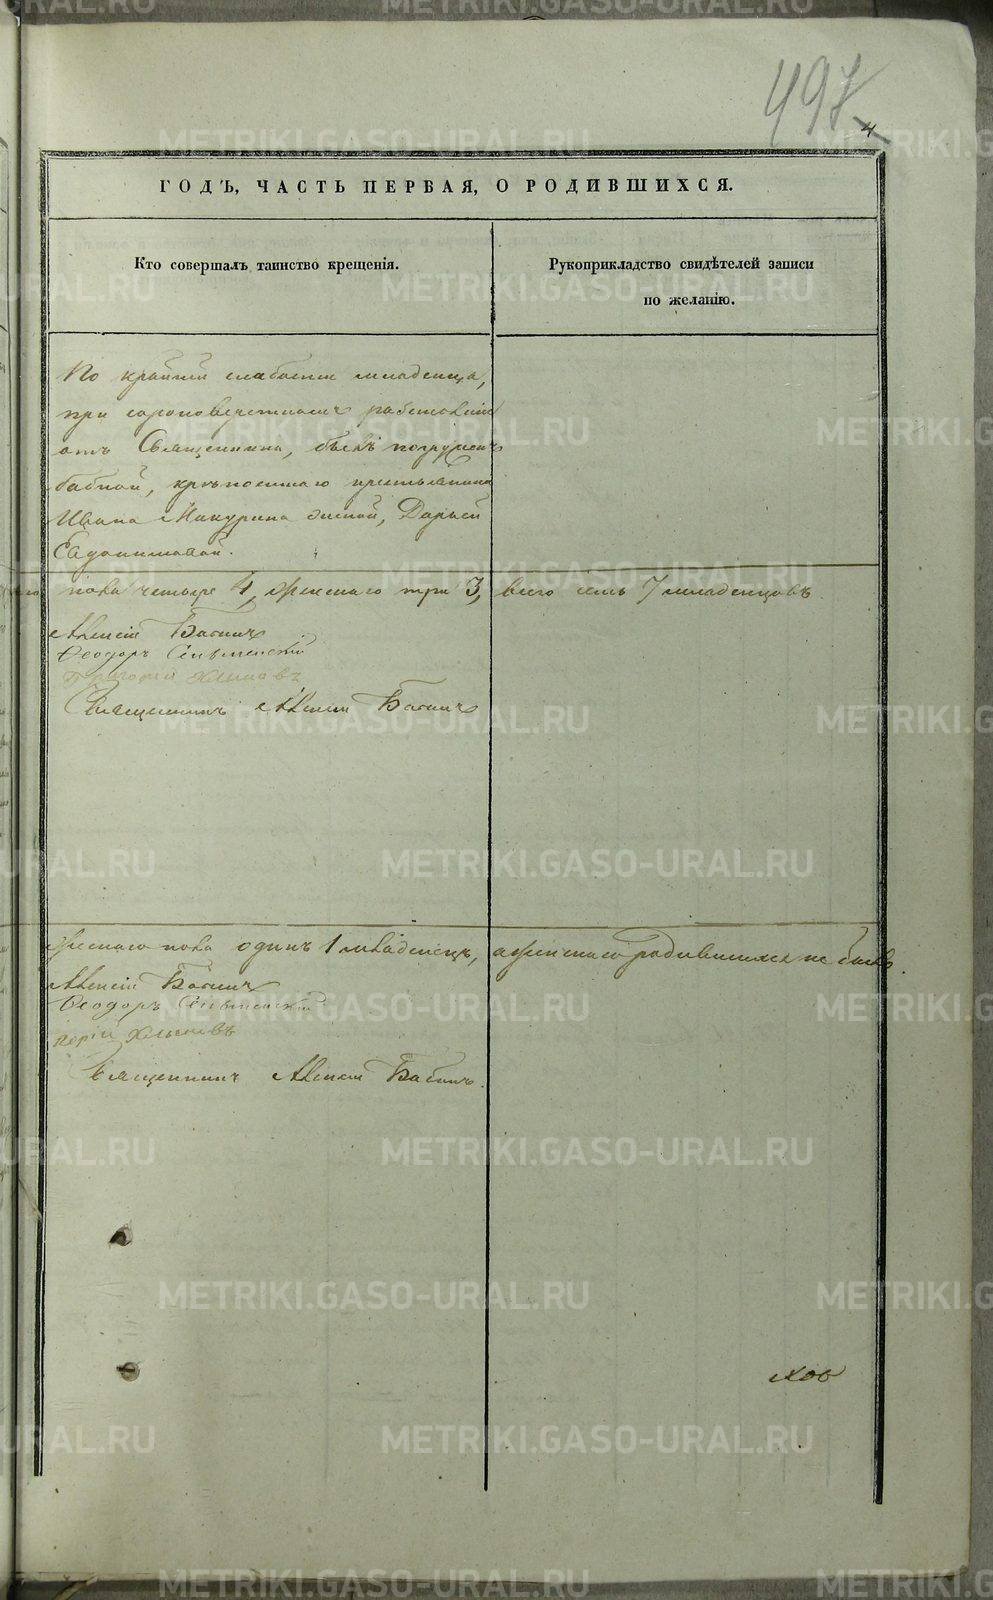 497
4
ГОДЪ, ЧАСТЬ ПЕРВАЯ, О РОДИВШИХСЯ.
Кто совершалъ таинство крещенія.
Рукоприкладство свидѣтелей записи
по желанію.
По крайней слабости младенца,
при сороковерстномъ разстояніи
отъ Священника, былъ погруженъ
бабкой, крѣпостнаго крестьянина
Ивана Мокурина женой, Дарьей
Евдокимовой.
пола четыре 4, женскаго три 3, всего семь 7 младенцовъ
Алексій Бабинъ
Ѳеодоръ
Григорій
Священникъ Алексій Бабинъ
пола одинъ 1 младенецъ, а женскаго родившихся не было.
Алексій Бабинъ
Ѳеодоръ
Священникъ Алексій Бабинъ.
METRIKI.GASO-URAL.RU